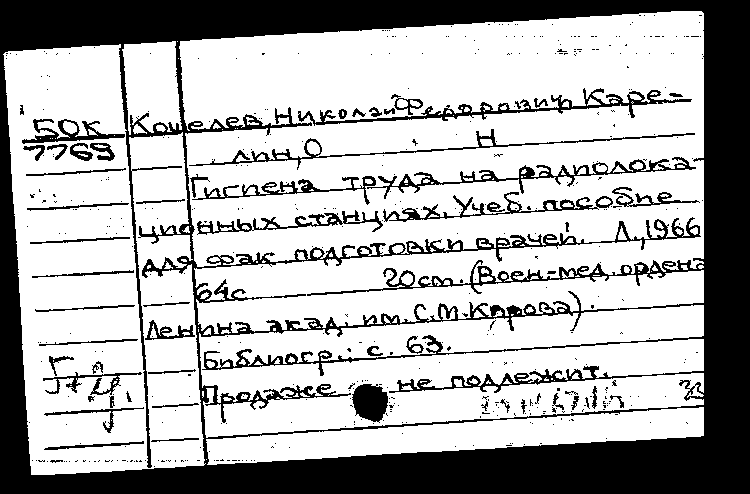 БОК Кошелев, Николай Федорович, Каре-
7769 лин, О Н
Гигиена труда на радиолока-
ционных станциях. Учеб. пособие
для фак подготовки врачей. Л., 1966
64с 20см. (Воен-мед. ордена
Ленина акад. им. С.М. Кирова).
Библиогр.: с. 63.
Продаже не подлежит.